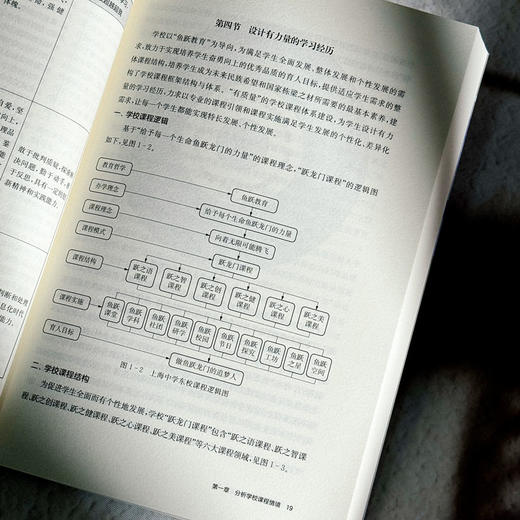 第四节 设计有力量的学习经历
学校以“鱼跃教育”为导向,为满足学生全面发展、整体发展和个性发展的需
求,致力于实现培养学生奋勇向上的优秀品质的育人目标,提供适应学生需求的整
体课程结构,培养学生成为未来民族希望和国家栋梁之材所需要的最基本素养,建
构了学校课程框架结构与体系。“有质量”的学校课程体系建设,为学生设计有力
量的学习经历,力求以专业的课程引领和课程实施满足学生发展的个性化、差异化
需求,让每一个学生都能实现特长发展、个性发展。
一、学校课程逻辑
基于“给予每一个生命鱼跃龙门的力量”的课程理念,“跃龙门课程”的逻辑图
如下,见图1-2。
教育哲学
鱼跃教育
办学理念
给予每个生命鱼跃龙门的力量
课程理念
向着无限可能腾飞
课程模式
跃龙门课程
课程结构
跃之语课程
跃之智课程
跃之创课程
跃之健课程
跃之心课程
跃之美课程
课程实施
鱼跃课堂
鱼跃学科
鱼跃社团
鱼跃研学
鱼跃校园
鱼跃节日
鱼跃探究
鱼跃工坊
鱼跃之星
鱼跃空间
育人目标
做鱼跃龙门的追梦人
图1-2 上海中学东校课程逻辑图
二、学校课程结构
为促进学生全面而有个性地发展,学校“跃龙门课程”包含“跃之语课程、跃之智课
程、跃之创课程、跃之健课程、跃之心课程、跃之美课程”等六大课程领域,见图1-3。
第一章 分析学校课程情境 19
敢于批判质疑,探索
决问题,勤于动手,善
于反思,具有一定的
新精神和实践能力。